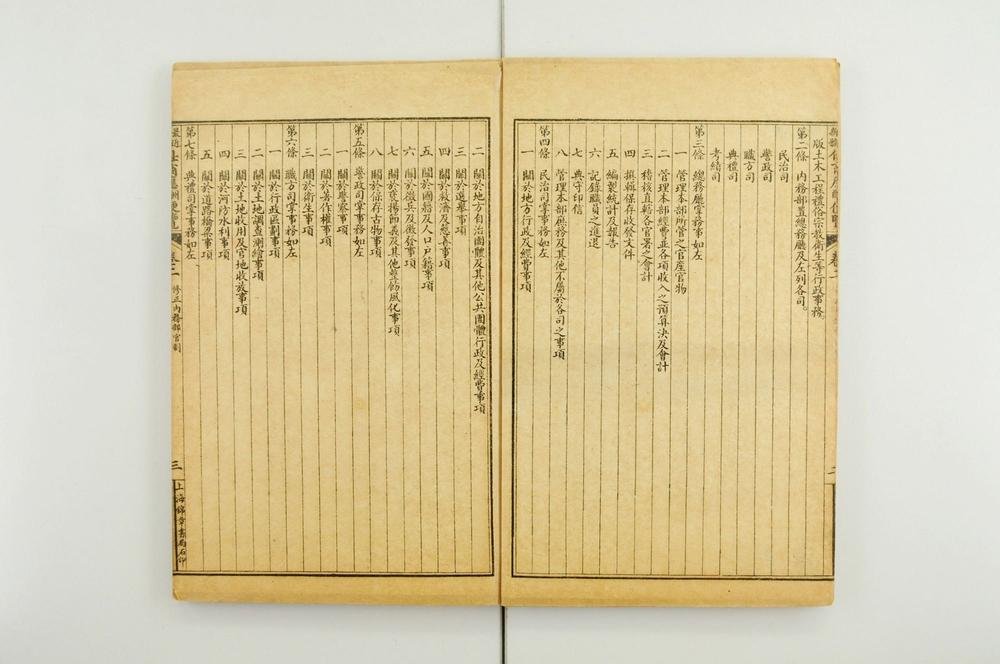 版土木工程禮俗宗教衛生等行政事務
第二條　內務部置總務廳及左列各司。
民治司
警政司
職方司
典禮司
考績司
第三條　總務廳掌務事如左
一　管理本部所管之官產官物
二　管理本部經費並各項收入之預算決及會計
三　稽核直轄各官署之會計
四　撰輯保存收發文件
五　編製統計及報告
六　記錄職員之進退
七　典守印信
八　管理本部庶務及其他不屬於各司之事項
第四條　民治司掌事務如左
一　關於地方行政及經費事項
二　關於地方自治團體及其他公共團體行政及經費事項
三　關於選舉事項
四　關於救濟及慈善事項
五　關於國籍及人口戶籍事項
六　關於徵兵及徵發事項
七　關於褒揚節義及其他整飭風化事項
八　關於保存古物事項
第五條　警政司掌事務如左
一　關於警察事項
二　關於著作權事項
三　關於衛生事項
第六條　職方司掌事務如左
一　關於行政區劃事項
二　關於土地調查測繪事項
三　關於土地收用及官地收放事項
四　關於河防水利事項
五　關於道路橋梁事項
第七條　典禮司掌事務如左
卷二　修正內務部官制
三
上海錦章書局石印